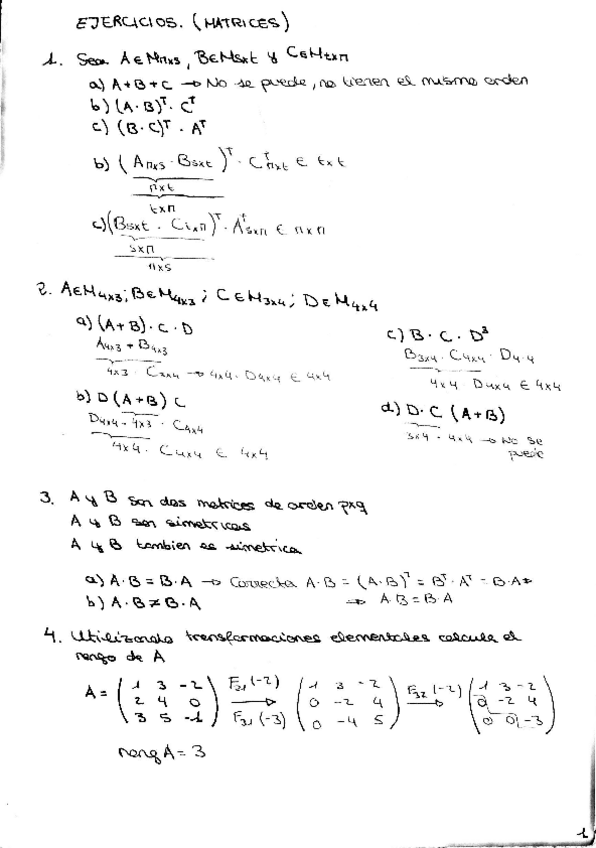 EJERCICIOS. (MATRICES)
1. Sea A∈Mnxs, B∈Msxt y C∈Mtxn
a) A+B+C → No se puede, no tienen el mismo orden
b) (A·B)ᵀ · Cᵀ
c) (B·C)ᵀ · Aᵀ
b) (Anxs · Bsxt)ᵀ · Cᵀnxt ∈ txt
nxt
txn
c) (Bsxt · Ctxn)ᵀ · Aᵀsxn ∈ nxn
sxn
nxs
2. A∈M4x3; B∈M4x3; C∈M3x4; D∈M4x4
a) (A+B)·C·D
A4x3 + B4x3
4x3 · C3x4 → 4x4 · D4x4 ∈ 4x4
b) D(A+B) C
D4x4 · 4x3 · C4x4
4x4 · C4x4 ∈ 4x4
c) B · C · D³
B3x4 · C4x4 · D4·4
4x4 D4x4 ∈ 4x4
d) D·C (A+B)
3x4 · 4x4 → No se
puede
3. A y B son dos matrices de orden pxq
A y B son simetricas
A y B tambien es simetrica
a) A·B = B·A → Correcta A·B = (A·B)ᵀ = Bᵀ·Aᵀ = B·A ⇒
⇒ A·B = B·A
b) A·B ≠ B·A
4. Utilizando transformaciones elementales calcula el
rango de A
A = (1 3 -2 F21(-2) (1 3 -2 F32(-2) (1 3 -2
2 4 0 → 0 -2 4 → 0 -2 4
3 5 -1) F31(-3) 0 -4 5) 0 0 -3)
rang A = 3
1